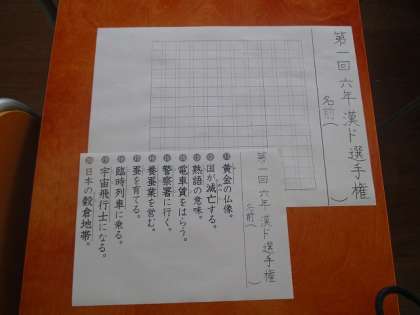 第一回六年漢ド選手権
名前（　　）
第一回六年漢ド選手権
名前（　　）
黄金の仏像。
国が滅亡する。
熟語の意味。
電車賃をはらう。
警察署に行く。
養蚕業を営む。
蚕を育てる。
臨時列車に乗る。
宇宙飛行士になる。
日本の穀倉地帯。